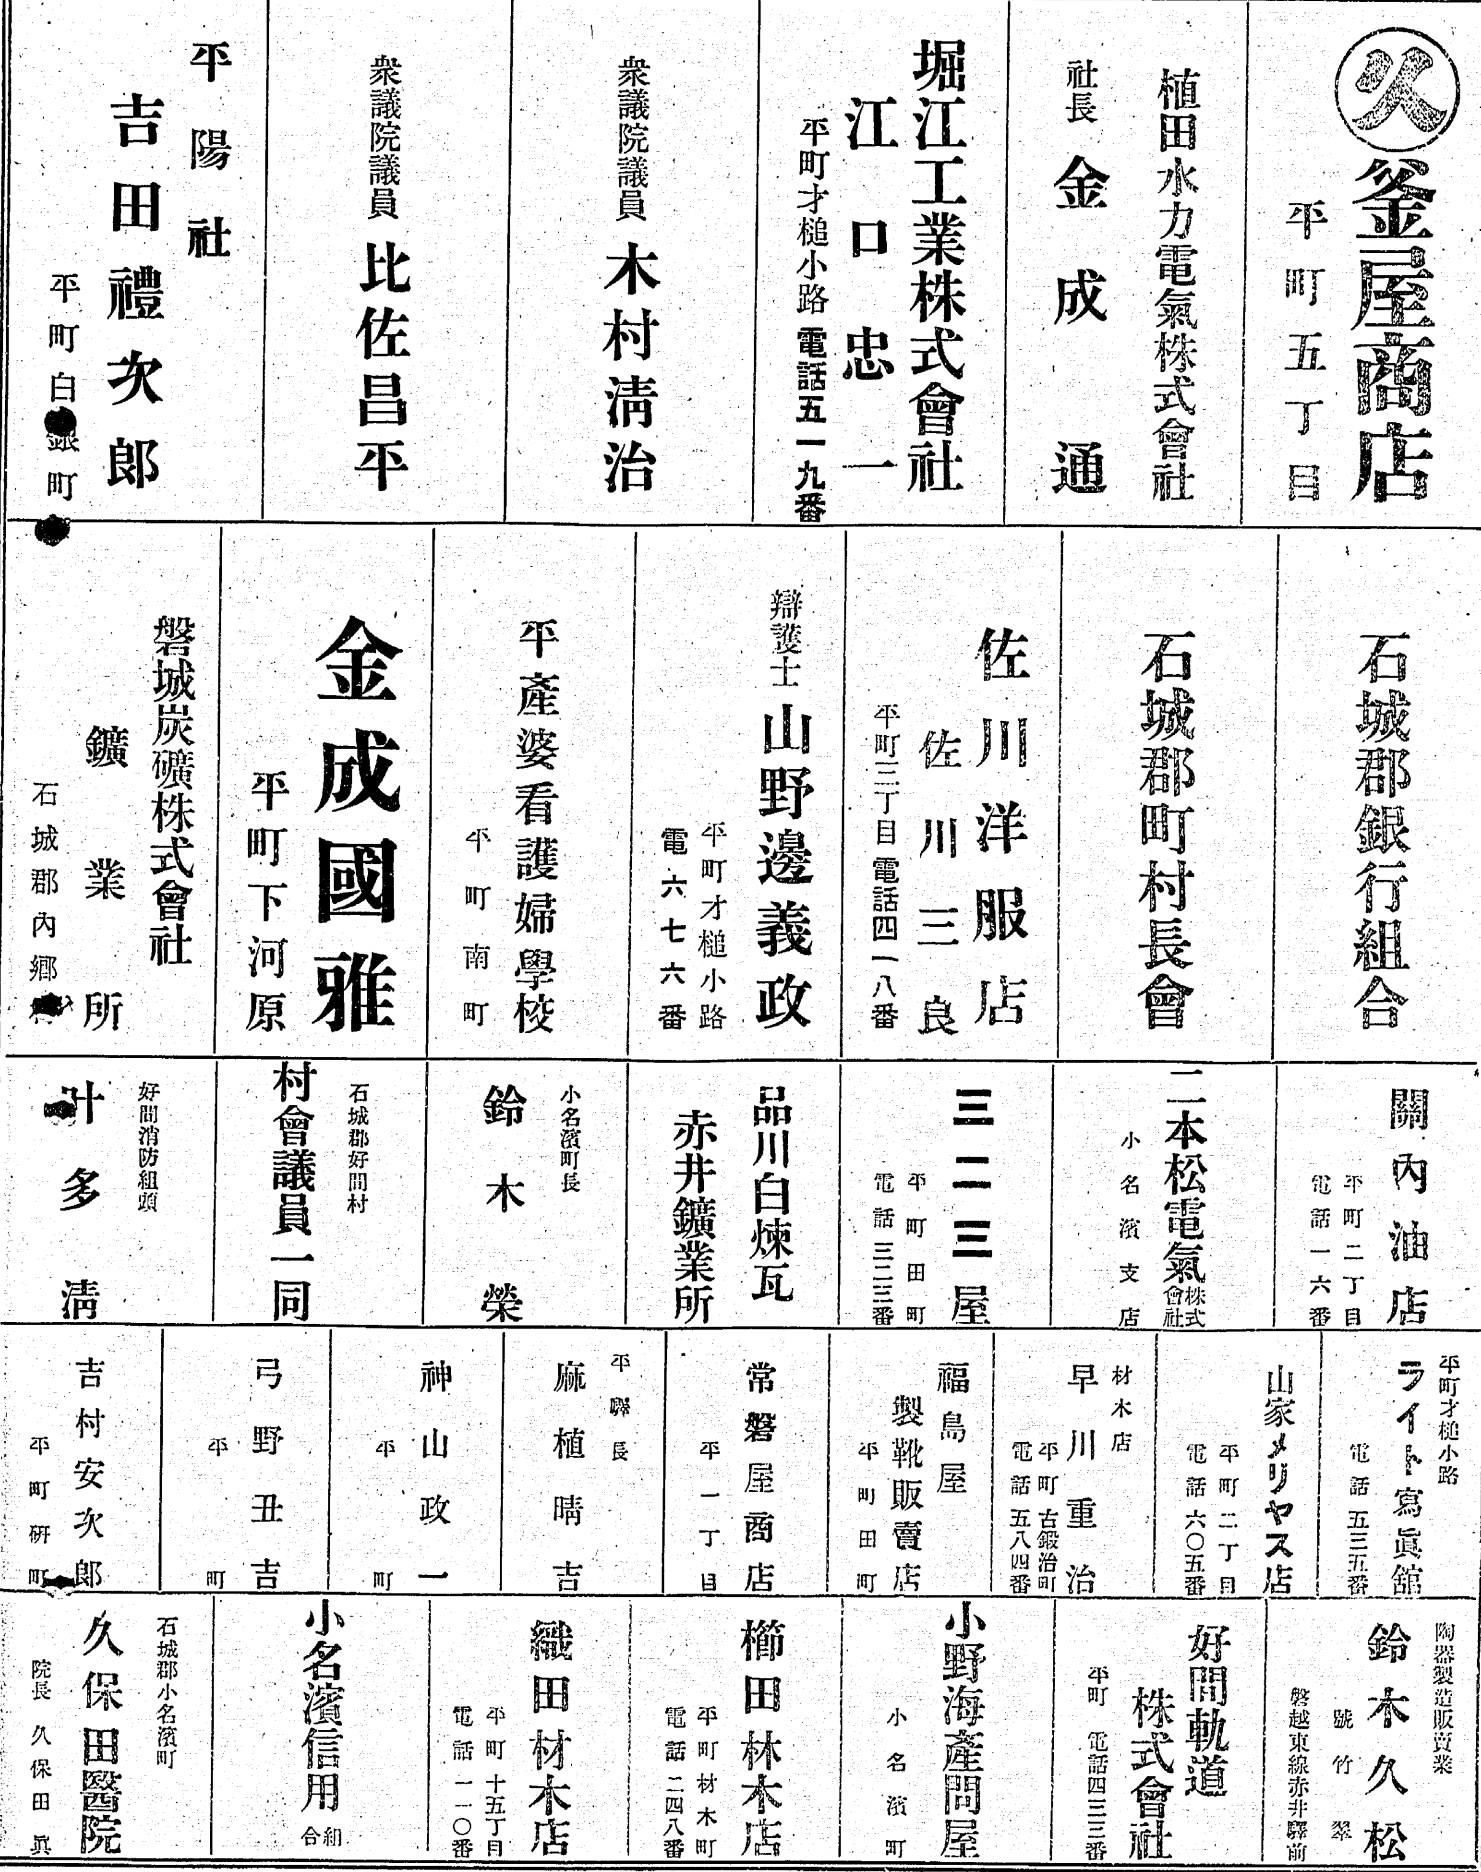 久
釜屋商店
平町五丁目
植田水力電氣株式會社
社長 金成通
堀江工業株式會社
江口忠一
平町才槌小路 電話五一九番
衆議院議員 木村淸治
衆議院議員 比佐昌平
平陽社
吉田禮次郎
平町白銀町
石城郡銀行組合
石城郡町村長會
佐川洋服店
佐川三良
平町三丁目 電話四一八番
辯護士 山野邊義政
平町才槌小路
電六七六番
平產婆看護婦學校
平町南町
金成國雅
平町下河原
磐城炭礦株式會社
鑛業所
石城郡內鄕
關內油店
平町二丁目
電話一六番
二本松電氣株式會社
小名濱支店
三二三屋
平町田町
電話三二三番
品川白煉瓦
赤井鑛業所
小名濱町長
鈴木榮
石城郡好間村
村會議員一同
好間消防組頭
叶多淸
平町才槌小路
ライト寫眞館
電話五三五番
山家メリヤス店
平町二丁目
電話六〇五番
材木店
早川重治
平町古鍛治町
電話五八四番
福島屋
製靴販賣店
平町田町
常磐屋商店
平一丁目
平驛長
麻植晴吉
神山政一
平町
弓野丑吉
平町
吉村安次郎
平町研町
陶器製造販賣業
鈴木久松
號竹翠
磐越東線赤井驛前
好間軌道
株式會社
平町 電話四三三番
小野海產問屋
小名濱町
櫛田林木店
平町材木町
電話二四八番
織田材木店
平町十五丁目
電話一一〇番
小名濱信用組合
石城郡小名濱町
久保田醫院
院長 久保田眞